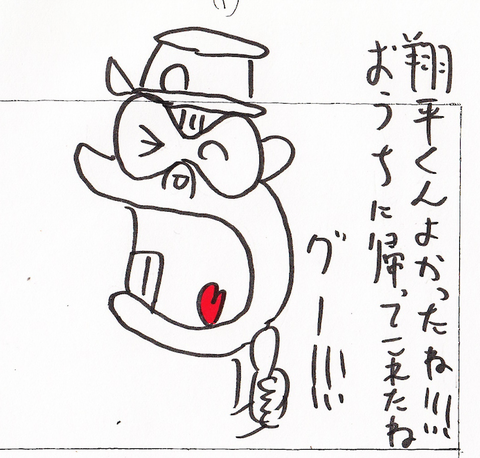 翔平くんよかったね!!!!
おうちに帰ってこれたね
グー!!!!